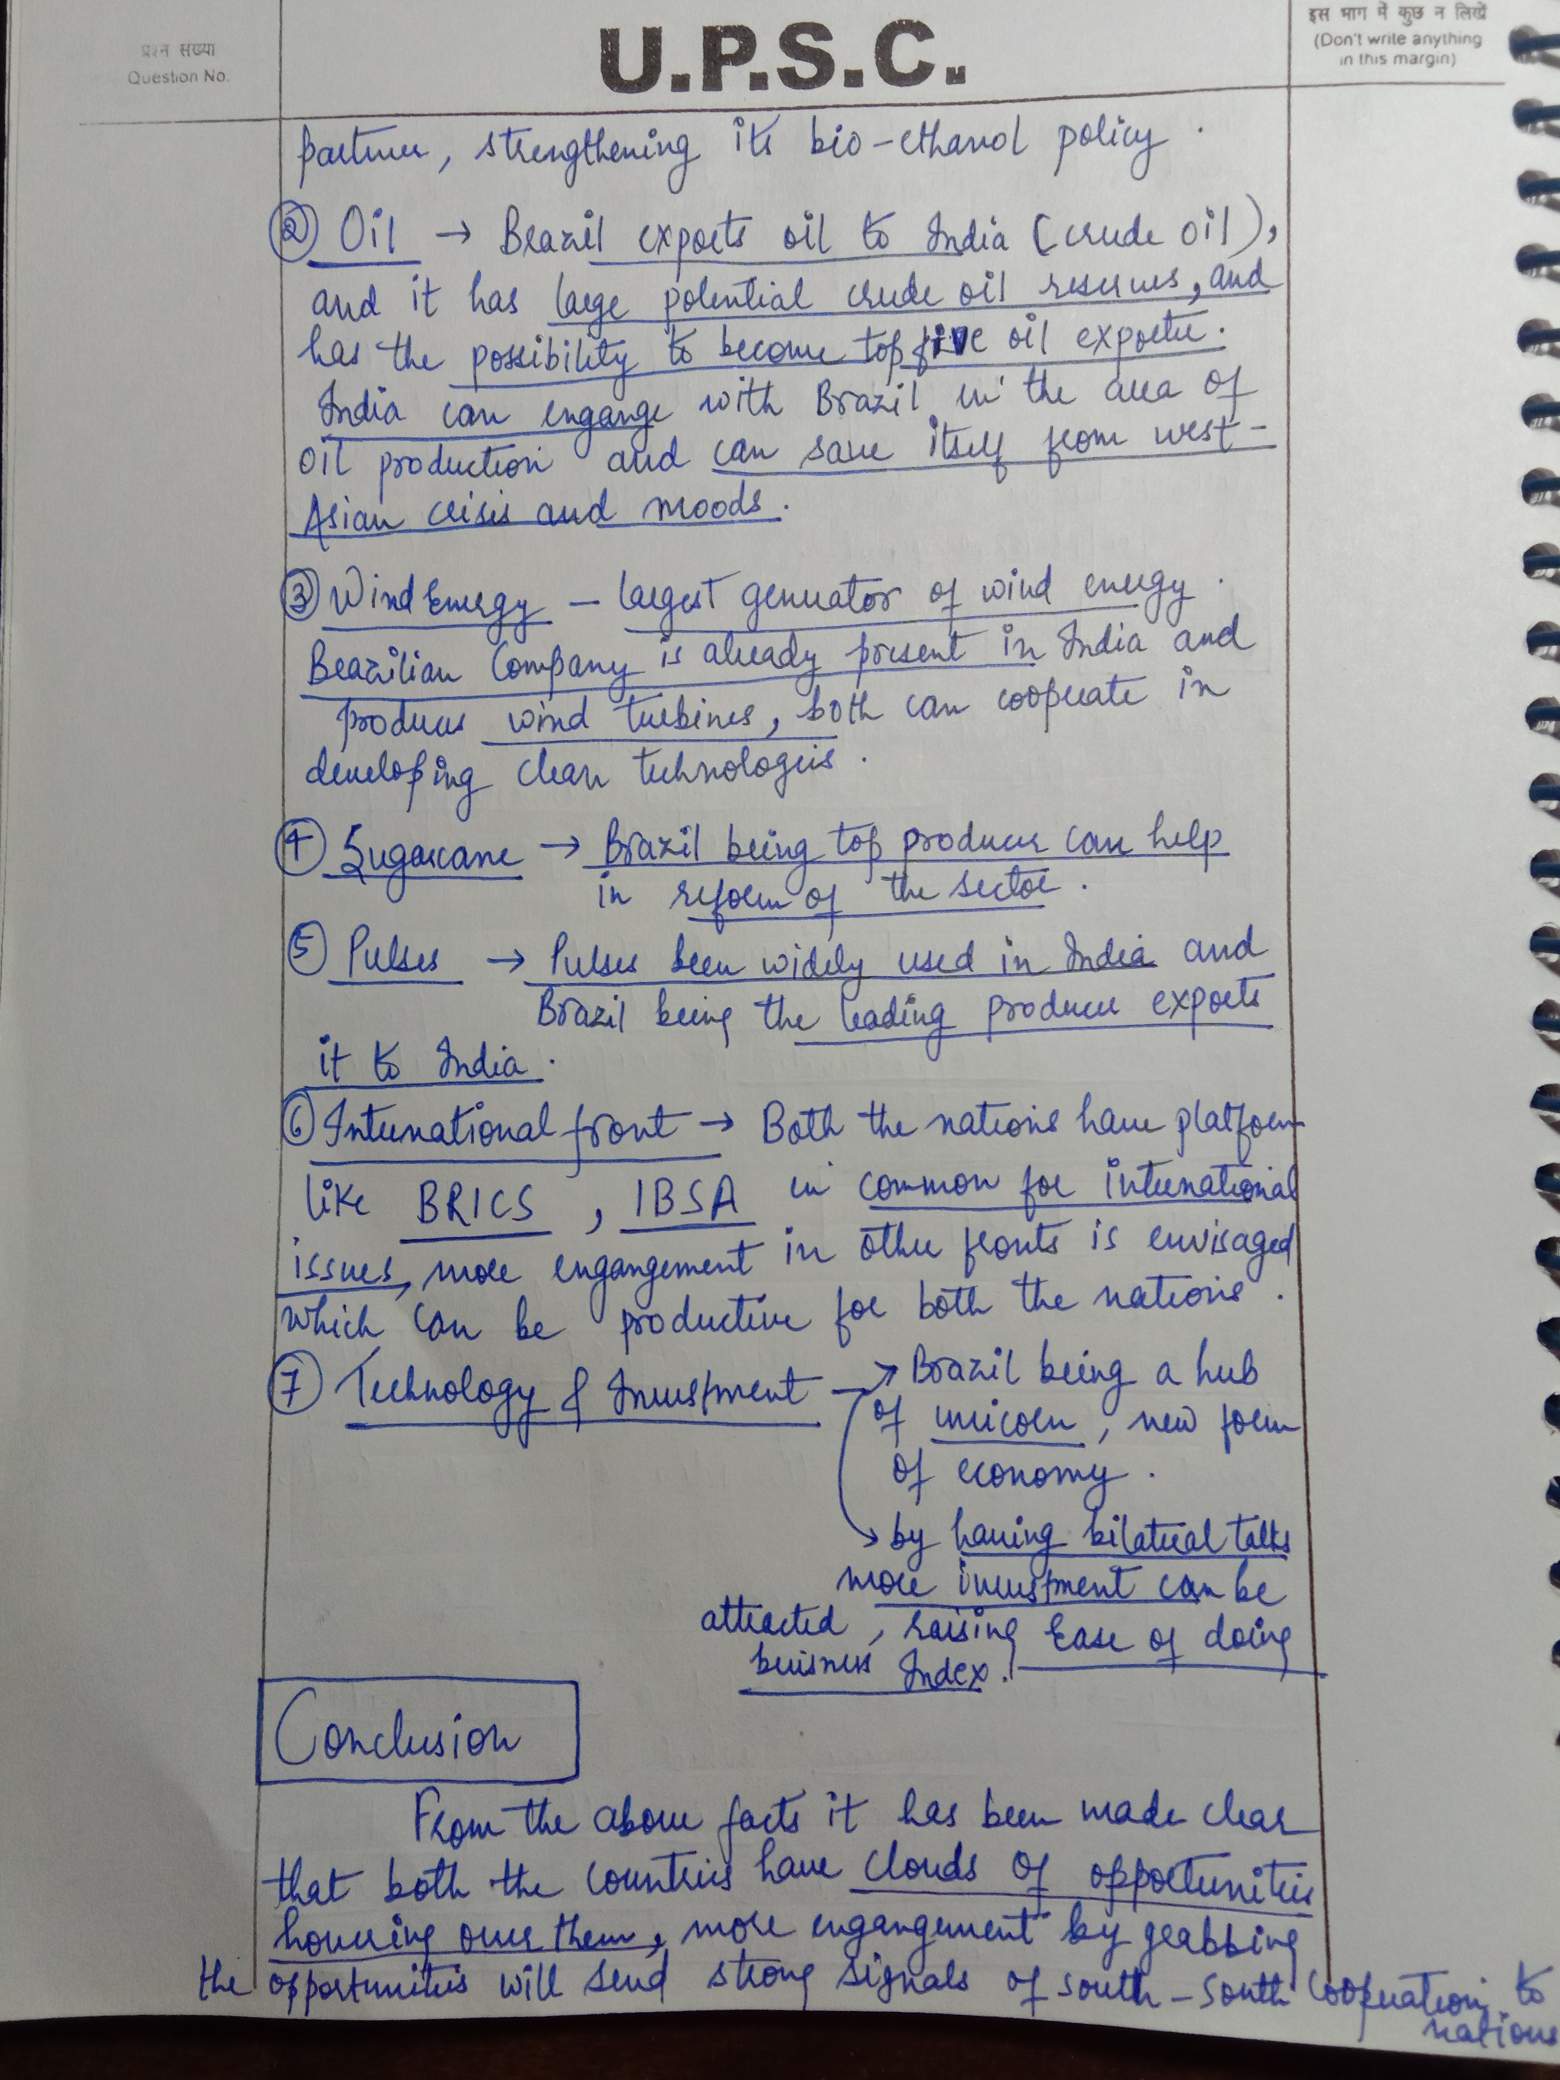 प्रश्न संख्या
Question No.
U.P.S.C.
इस भाग में कुछ न लिखें
(Don't write anything
in this margin)
partner, strengthening its bio-ethanol policy.
② Oil → Brazil exports oil to India (crude oil),
and it has large potential crude oil reserves, and
has the possibility to become top five oil exporter.
India can engange with Brazil in the area of
oil production and can save itself from west-
Asian crisis and moods.
③ Wind Energy – largest generator of wind energy.
Brazilian Company is already present in India and
produces wind turbines, both can cooperate in
developing clean technologeis.
④ Sugarcane → Brazil being top producer can help
in reform of the sector.
⑤ Pulses → Pulses been widely used in India and
Brazil being the leading producer exports
it to India.
⑥ International front → Both the nations have platform
like BRICS, IBSA in common for international
issues, more engangement in other fronts is envisaged
which can be productive for both the nations.
⑦ Technology & Investment → Brazil being a hub
of unicorn, new form
of economy.
→ by having bilateral talks
more investment can be
attracted, raising Ease of doing
buisness Index.
Conclusion
From the above facts it has been made clear
that both the countries have clouds of opportunities
hovering over them, more engangement by grabbing
the opportunities will send strong signals of south-south cooperation to
nations